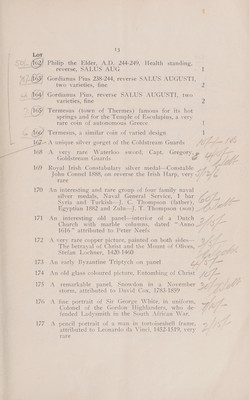 13
Lot
162 Philip the Elder, A.D. 244-249, Health standing,
reverse, SALUS AUG 1
163 Gordianus Pius 238-244, reverse SALUS AUGUSTI,
two varieties, fine 2
164 Gordianus Pius, reverse SALUS AUGUSTI, two
varieties, fine 2
165 Termessus (town of Thermes) famous for its hot
springs and for the Temple of Esculapius, a very
rare coin of autonomous Greece 1
166 Termessus, a similar coin of varied design 1
167 A unique silver gorget of the Coldstream Guards
168 A very rare Waterloo sword, Capt. Gregory,
Coldstream Guards
169 Royal Irish Constabulary silver medal—Constable
John Consel 1888, on reverse the Irish Harp, very
rare
170 An interesting and rare group of four family naval
silver medals, Naval General Service, 1 bar
Syria and Turkish—J. C. Thompson (father),
Egyptian 1882 and Zulu—J. T. Thompson (son)
171 An interesting old panel—interior of a Dutch
Church with marble columns, dated "Anno
attributed to Peter Neefs
172 A very rare copper picture, painted on both sides—
The betrayal of Christ and the Mount of Olives,
Stefan Lochner, 1420-1460
173 An early Byzantine Triptych on panel
174 An old glass coloured picture, Entombing of Christ
175 A remarkable panel, Snowdon in a November
storm, attributed to David Cox, 1783-1859
176 A fine portrait of Sir George White, in uniform,
Colonel of the Gordon Highlanders, who de-
fended Ladysmith in the South African War
177 A pencil portrait of a man in tortoiseshell frame,
attributed to Leonardo da Vinci, 1452-1519, very
rare